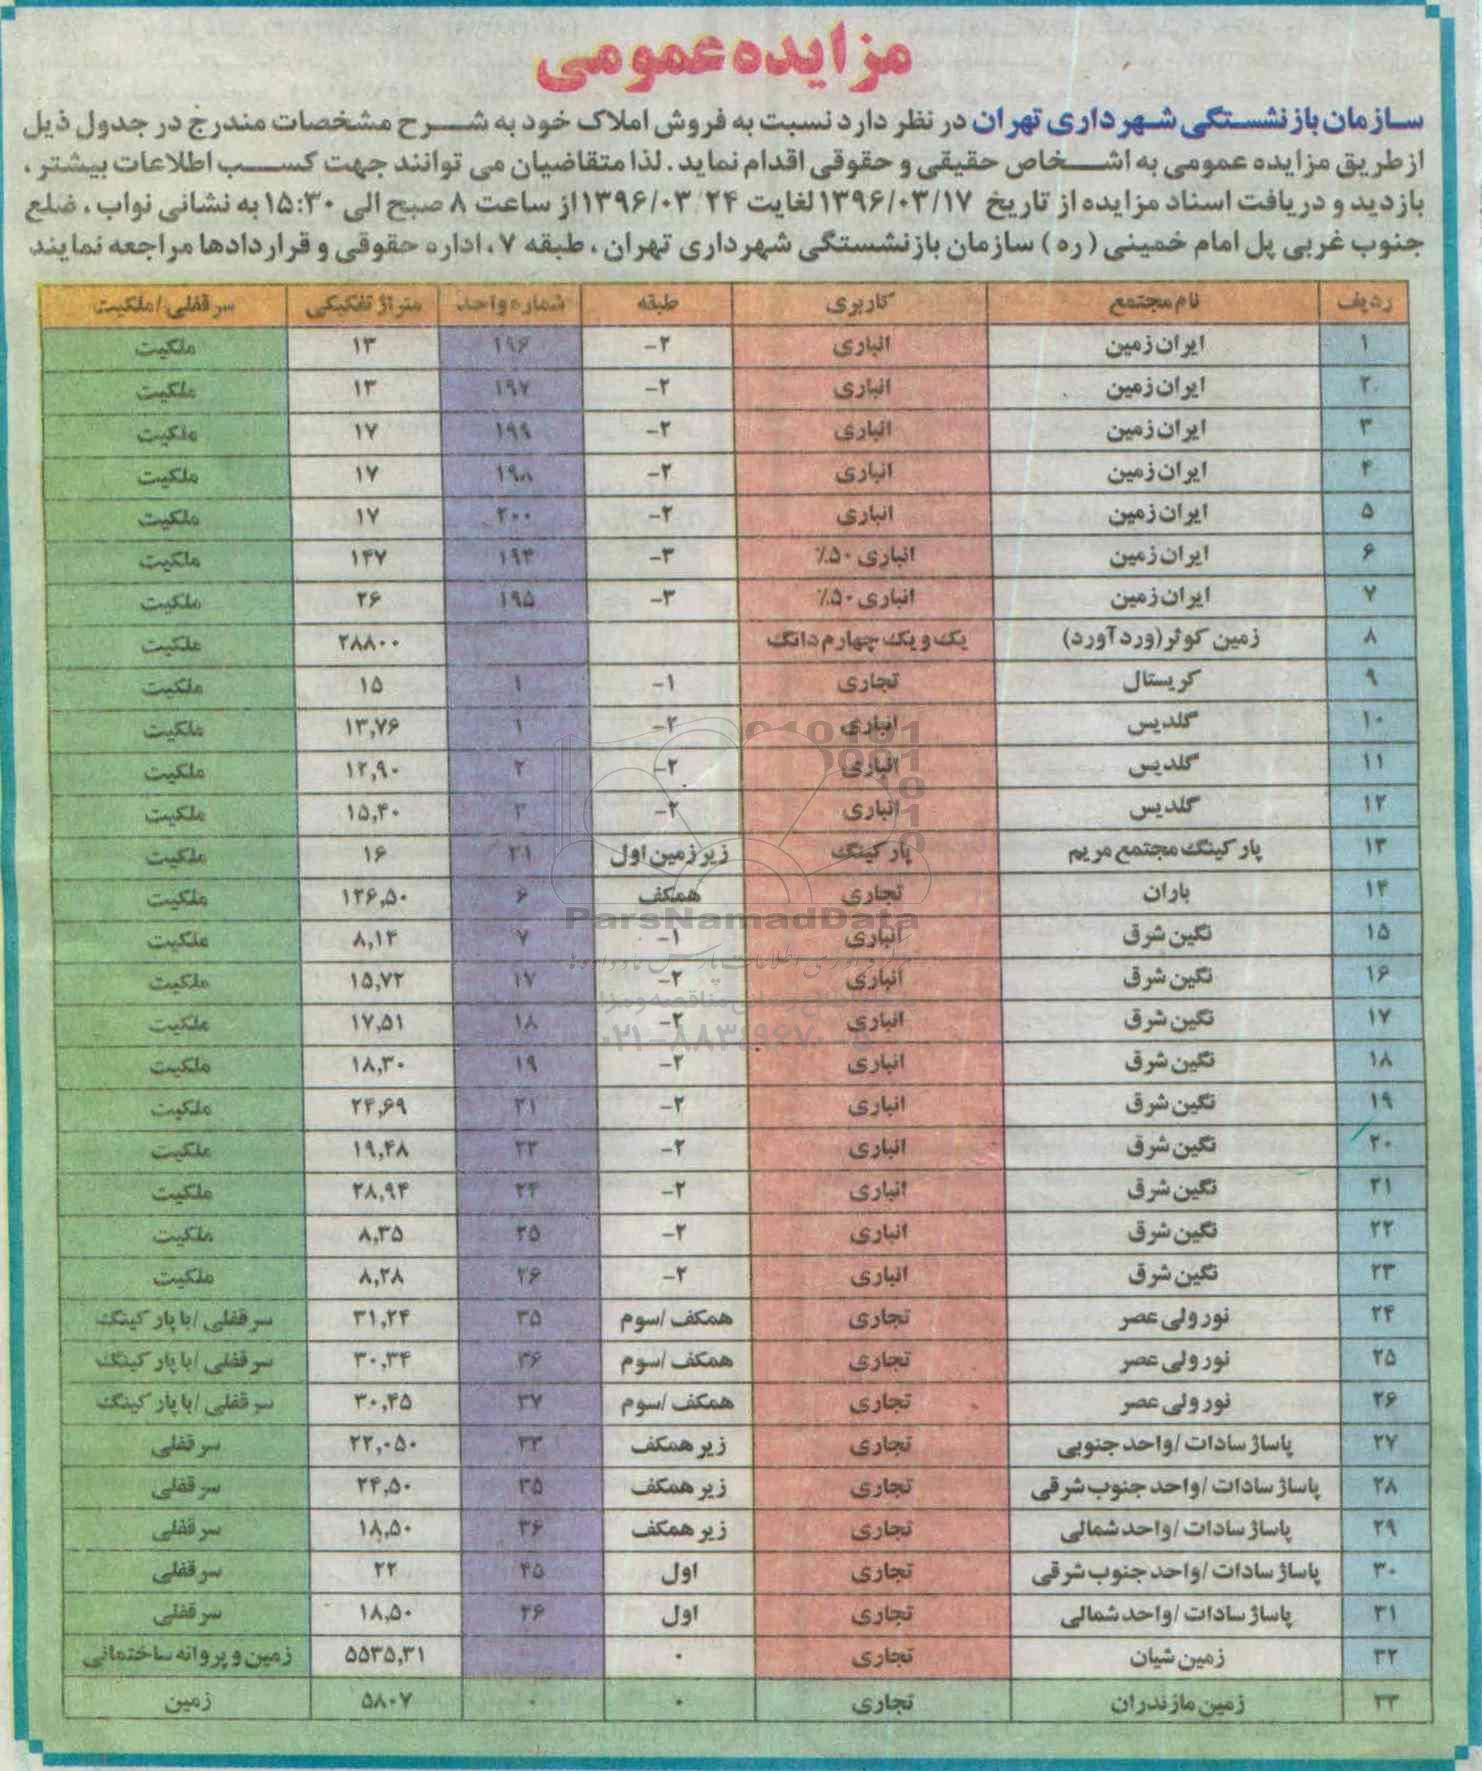 مزایده عمومی
سازمان بازنشستگی شهرداری تهران در نظر دارد نسبت به فروش املاک خود به شرح مشخصات مندرج در جدول ذیل
از طریق مزایده عمومی به اشخاص حقیقی و حقوقی اقدام نماید. لذا متقاضیان می توانند جهت کسب اطلاعات بیشتر،
بازدید و دریافت اسناد مزایده از تاریخ ۱۳۹۶/۰۳/۱۷ لغایت ۱۳۹۶/۰۳/۲۴ از ساعت ۸ صبح الی ۱۵:۳۰ به نشانی نواب، ضلع
جنوب غربی پل امام خمینی (ره) سازمان بازنشستگی شهرداری تهران، طبقه ۷، اداره حقوقی و قراردادها مراجعه نمایند
ردیف نام مجتمع کاربری طبقه شماره واحد متراژ تفکیکی سرقفلی/ملکیت
۱ ایران زمین انباری -۲ ۱۹۶ ۱۳ ملکیت
۲ ایران زمین انباری -۲ ۱۹۷ ۱۳ ملکیت
۳ ایران زمین انباری -۲ ۱۹۹ ۱۷ ملکیت
۴ ایران زمین انباری -۲ ۱۹۸ ۱۷ ملکیت
۵ ایران زمین انباری -۲ ۲۰۰ ۱۷ ملکیت
۶ ایران زمین انباری ۵۰٪ -۳ ۱۹۴ ۱۴۷ ملکیت
۷ ایران زمین انباری ۵۰٪ -۳ ۱۹۵ ۲۶ ملکیت
۸ زمین کوثر (ورد آورد) یک و یک چهارم دانگ ۲۸۸۰۰ ملکیت
۹ کریستال تجاری -۱ ۱ ۱۵ ملکیت
۱۰ گلدیس انباری -۲ ۱ ۱۳,۷۶ ملکیت
۱۱ گلدیس انباری -۲ ۲ ۱۲,۹۰ ملکیت
۱۲ گلدیس انباری -۲ ۳ ۱۵,۴۰ ملکیت
۱۳ پارکینگ مجتمع مریم پارکینگ زیرزمین اول ۲۱ ۱۶ ملکیت
۱۴ باران تجاری همکف ۶ ۱۲۶,۵۰ ملکیت
۱۵ نگین شرق انباری -۱ ۷ ۸,۱۴ ملکیت
۱۶ نگین شرق انباری -۲ ۱۷ ۱۵,۷۲ ملکیت
۱۷ نگین شرق انباری -۲ ۱۸ ۱۷,۵۱ ملکیت
۱۸ نگین شرق انباری -۲ ۱۹ ۱۸,۳۰ ملکیت
۱۹ نگین شرق انباری -۲ ۲۱ ۲۴,۶۹ ملکیت
۲۰ نگین شرق انباری -۲ ۲۳ ۱۹,۴۸ ملکیت
۲۱ نگین شرق انباری -۲ ۲۴ ۲۸,۹۴ ملکیت
۲۲ نگین شرق انباری -۲ ۲۵ ۸,۳۵ ملکیت
۲۳ نگین شرق انباری -۲ ۲۶ ۸,۲۸ ملکیت
۲۴ نور ولی عصر تجاری همکف/سوم ۳۵ ۳۱,۲۴ سرقفلی/با پارکینگ
۲۵ نور ولی عصر تجاری همکف/سوم ۳۶ ۳۰,۳۴ سرقفلی/با پارکینگ
۲۶ نور ولی عصر تجاری همکف/سوم ۳۷ ۳۰,۴۵ سرقفلی/با پارکینگ
۲۷ پاساژ سادات/واحد جنوبی تجاری زیر همکف ۳۳ ۲۲,۰۵۰ سرقفلی
۲۸ پاساژ سادات/واحد جنوب شرقی تجاری زیر همکف ۳۵ ۲۴,۵۰ سرقفلی
۲۹ پاساژ سادات/واحد شمالی تجاری زیر همکف ۳۶ ۱۸,۵۰ سرقفلی
۳۰ پاساژ سادات/واحد جنوب شرقی تجاری اول ۴۵ ۲۲ سرقفلی
۳۱ پاساژ سادات/واحد شمالی تجاری اول ۴۶ ۱۸,۵۰ سرقفلی
۳۲ زمین شیان تجاری ۰ ۵۵۳۵,۳۱ زمین و پروانه ساختمانی
۳۳ زمین مازندران تجاری ۰ ۰ ۵۸۰۷ زمین
ParsNamadData